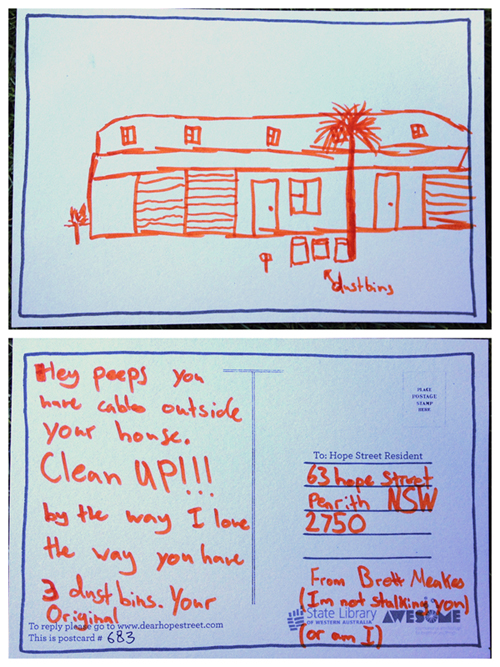 dustbins
Hey peeps you
have cable outside
your house.
Clean UP!!!
by the way I love
the way you have
3 dustbins. Your
Original
To reply please go to www.dearhopestreet.com
This is postcard # 683
PLACE
POSTAGE
STAMP
HERE
To: Hope Street Resident
63 hope street
Penrith NSW
2750
From Brett Meakes
(Im not stalking you)
State Library
OF WESTERN AUSTRALIA
AWESOME
(or am I)